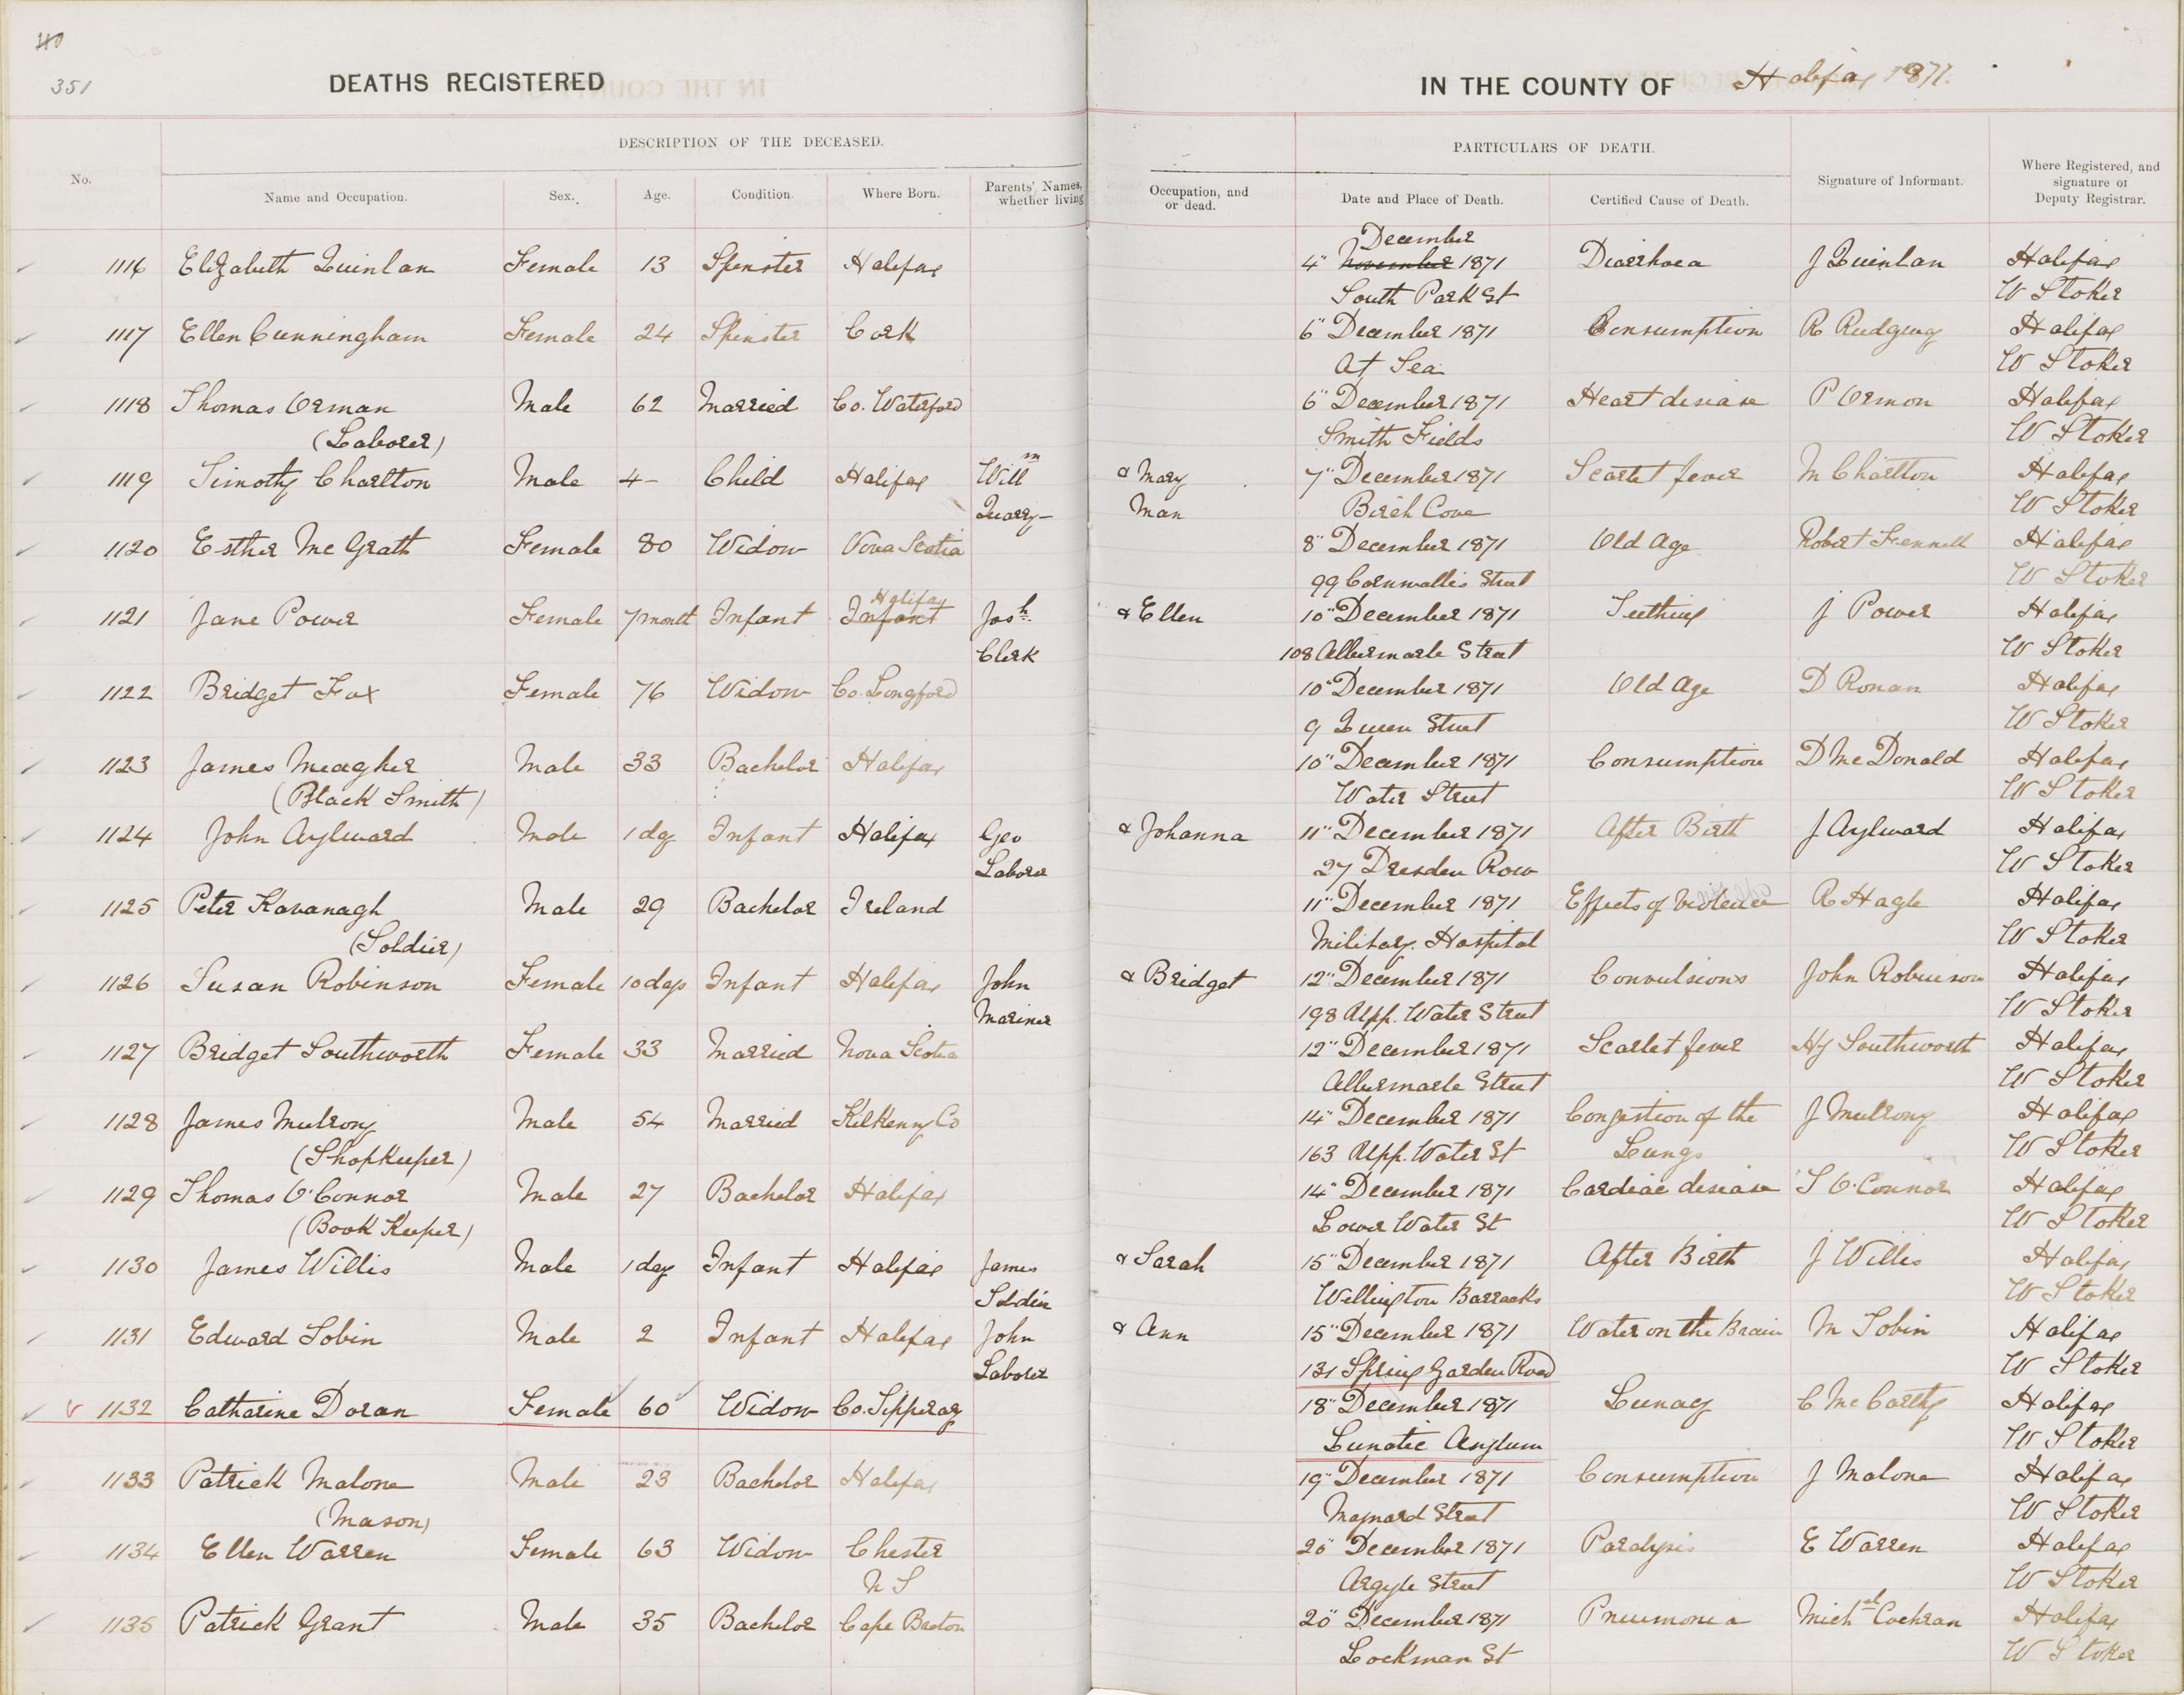 40
351
DEATHS REGISTERED IN THE COUNTY OF Halifax 1871.
DESCRIPTION OF THE DECEASED. PARTICULARS OF DEATH.
No. Name and Occupation. Sex. Age. Condition. Where Born. Parents' Names, whether living Occupation, and or dead. Date and Place of Death. Certified Cause of Death. Signature of Informant. Where Registered, and signature of Deputy Registrar.
December
1116 Elizabeth Quinlan Female 13 Spinster Halifax 4" November 1871 Diarrhoea J Quinlan Halifax
South Park St W Stoker
1117 Ellen Cunningham Female 24 Spinster Cork 6" December 1871 Consumption R Halifax
At Sea W Stoker
1118 Thomas Orman Male 62 Married Co. Waterford 6" December 1871 Heart disease P Ormon Halifax
(Laborer) Smith Fields W Stoker
1119 Timothy Charlton Male 4- Child Halifax Will m & Mary 7" December 1871 Scarlet fever M Charlton Halifax
Quarry- Man Birch Cove W Stoker
1120 Esther Mc Grath Female 80 Widow Nova Scotia 8" December 1871 Old Age Robert Fennell Halifax
99 Cornwallis Street W Stoker
Halifax
1121 Jane Power Female 7 month Infant Infant Josh & Ellen 10" December 1871 Teething J Power Halifax
Clerk 108 Albermarle Street W Stoker
1122 Bridget Fox Female 76 Widow Co. Longford 10" December 1871 Old Age D Ronan Halifax
9 Queen Street W Stoker
1123 James Meagher Male 33 Bachelor Halifax 10" December 1871 Consumption D Mc Donald Halifax
(Black Smith) Water Street W Stoker
1124 John Aylward Male 1 day Infant Halifax Geo & Johanna 11" December 1871 After Birth J Aylward Halifax
Laborer 27 Dresden Row W Stoker
1125 Peter Kavanagh Male 29 Bachelor Ireland 11" December 1871 Effects of Violence R Hagle Halifax
(Soldier) Military Hospital W Stoker
1126 Susan Robinson Female 10 days Infant Halifax John & Bridget 12" December 1871 Convulsions John Robinson Halifax
Mariner 198 Upp. Water Street W Stoker
1127 Bridget Southworth Female 33 Married Nova Scotia 12" December 1871 Scarlet fever Hy Southworth Halifax
Albermarle Street W Stoker
1128 James Mulrony Male 54 Married Kilkenny Co 14" December 1871 Congestion of the J Mulrony Halifax
(Shopkeeper) 163 Upp. Water St Lungs W Stoker
1129 Thomas O'Connor Male 27 Bachelor Halifax 14" December 1871 Cardiac disease T O'Connor Halifax
(Book Keeper) Lower Water St W Stoker
1130 James Willis Male 1 day Infant Halifax James & Sarah 15" December 1871 After Birth J Willis Halifax
Soldier Wellington Barracks W Stoker
1131 Edward Tobin Male 2 Infant Halifax John & Ann 15" December 1871 Water on the Brain M Tobin Halifax
Laborer 131 Spring Garden Road W Stoker
1132 Catharine Doran Female 60 Widow Co. Tipperary 18" December 1871 Lunacy C Mc Carthy Halifax
Lunatic Asylum W Stoker
1133 Patrick Malone Male 23 Bachelor Halifax 19" December 1871 Consumption J Malone Halifax
(Mason) Maynard Street W Stoker
1134 Ellen Warren Female 63 Widow Chester 20" December 1871 Paralysis E Warren Halifax
N S Argyle Street W Stoker
1135 Patrick Grant Male 35 Bachelor Cape Breton 20" December 1871 Pneumonia Michael Cochran Halifax
Lockman St W Stoker